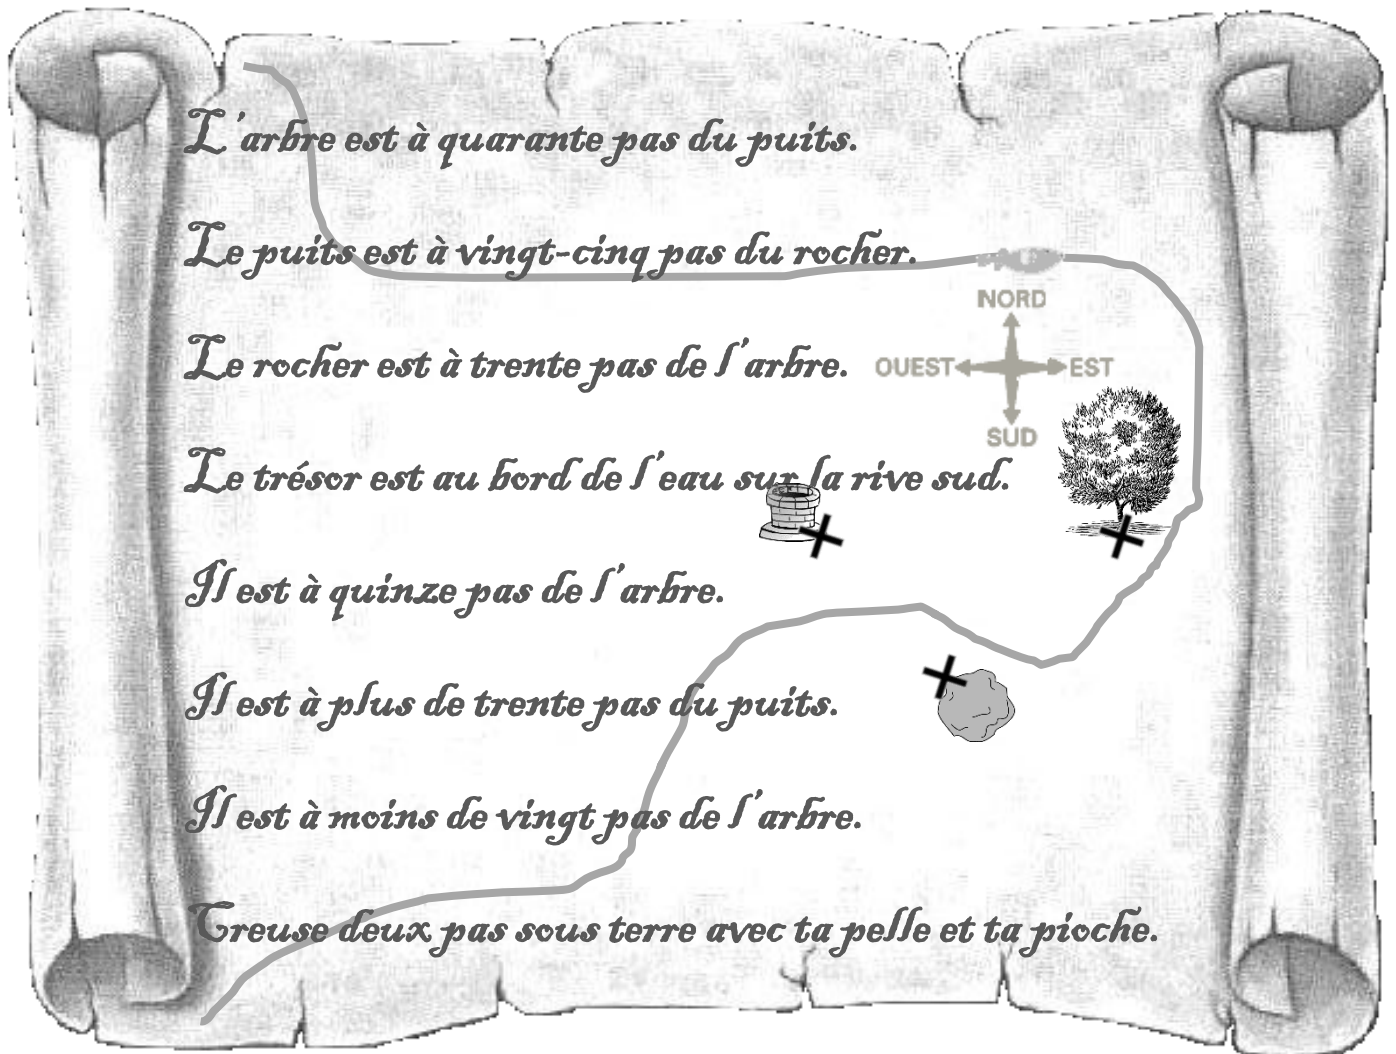 L'arbre est à quarante pas du puits.
Le puits est à vingt-cinq pas du rocher.
NORD
Le rocher est à trente pas de l'arbre.
OUEST EST
SUD
Le trésor est au bord de l'eau sur la rive sud.
Il est à quinze pas de l'arbre.
Il est à plus de trente pas du puits.
Il est à moins de vingt pas de l'arbre.
Creuse deux pas sous terre avec ta pelle et ta pioche.